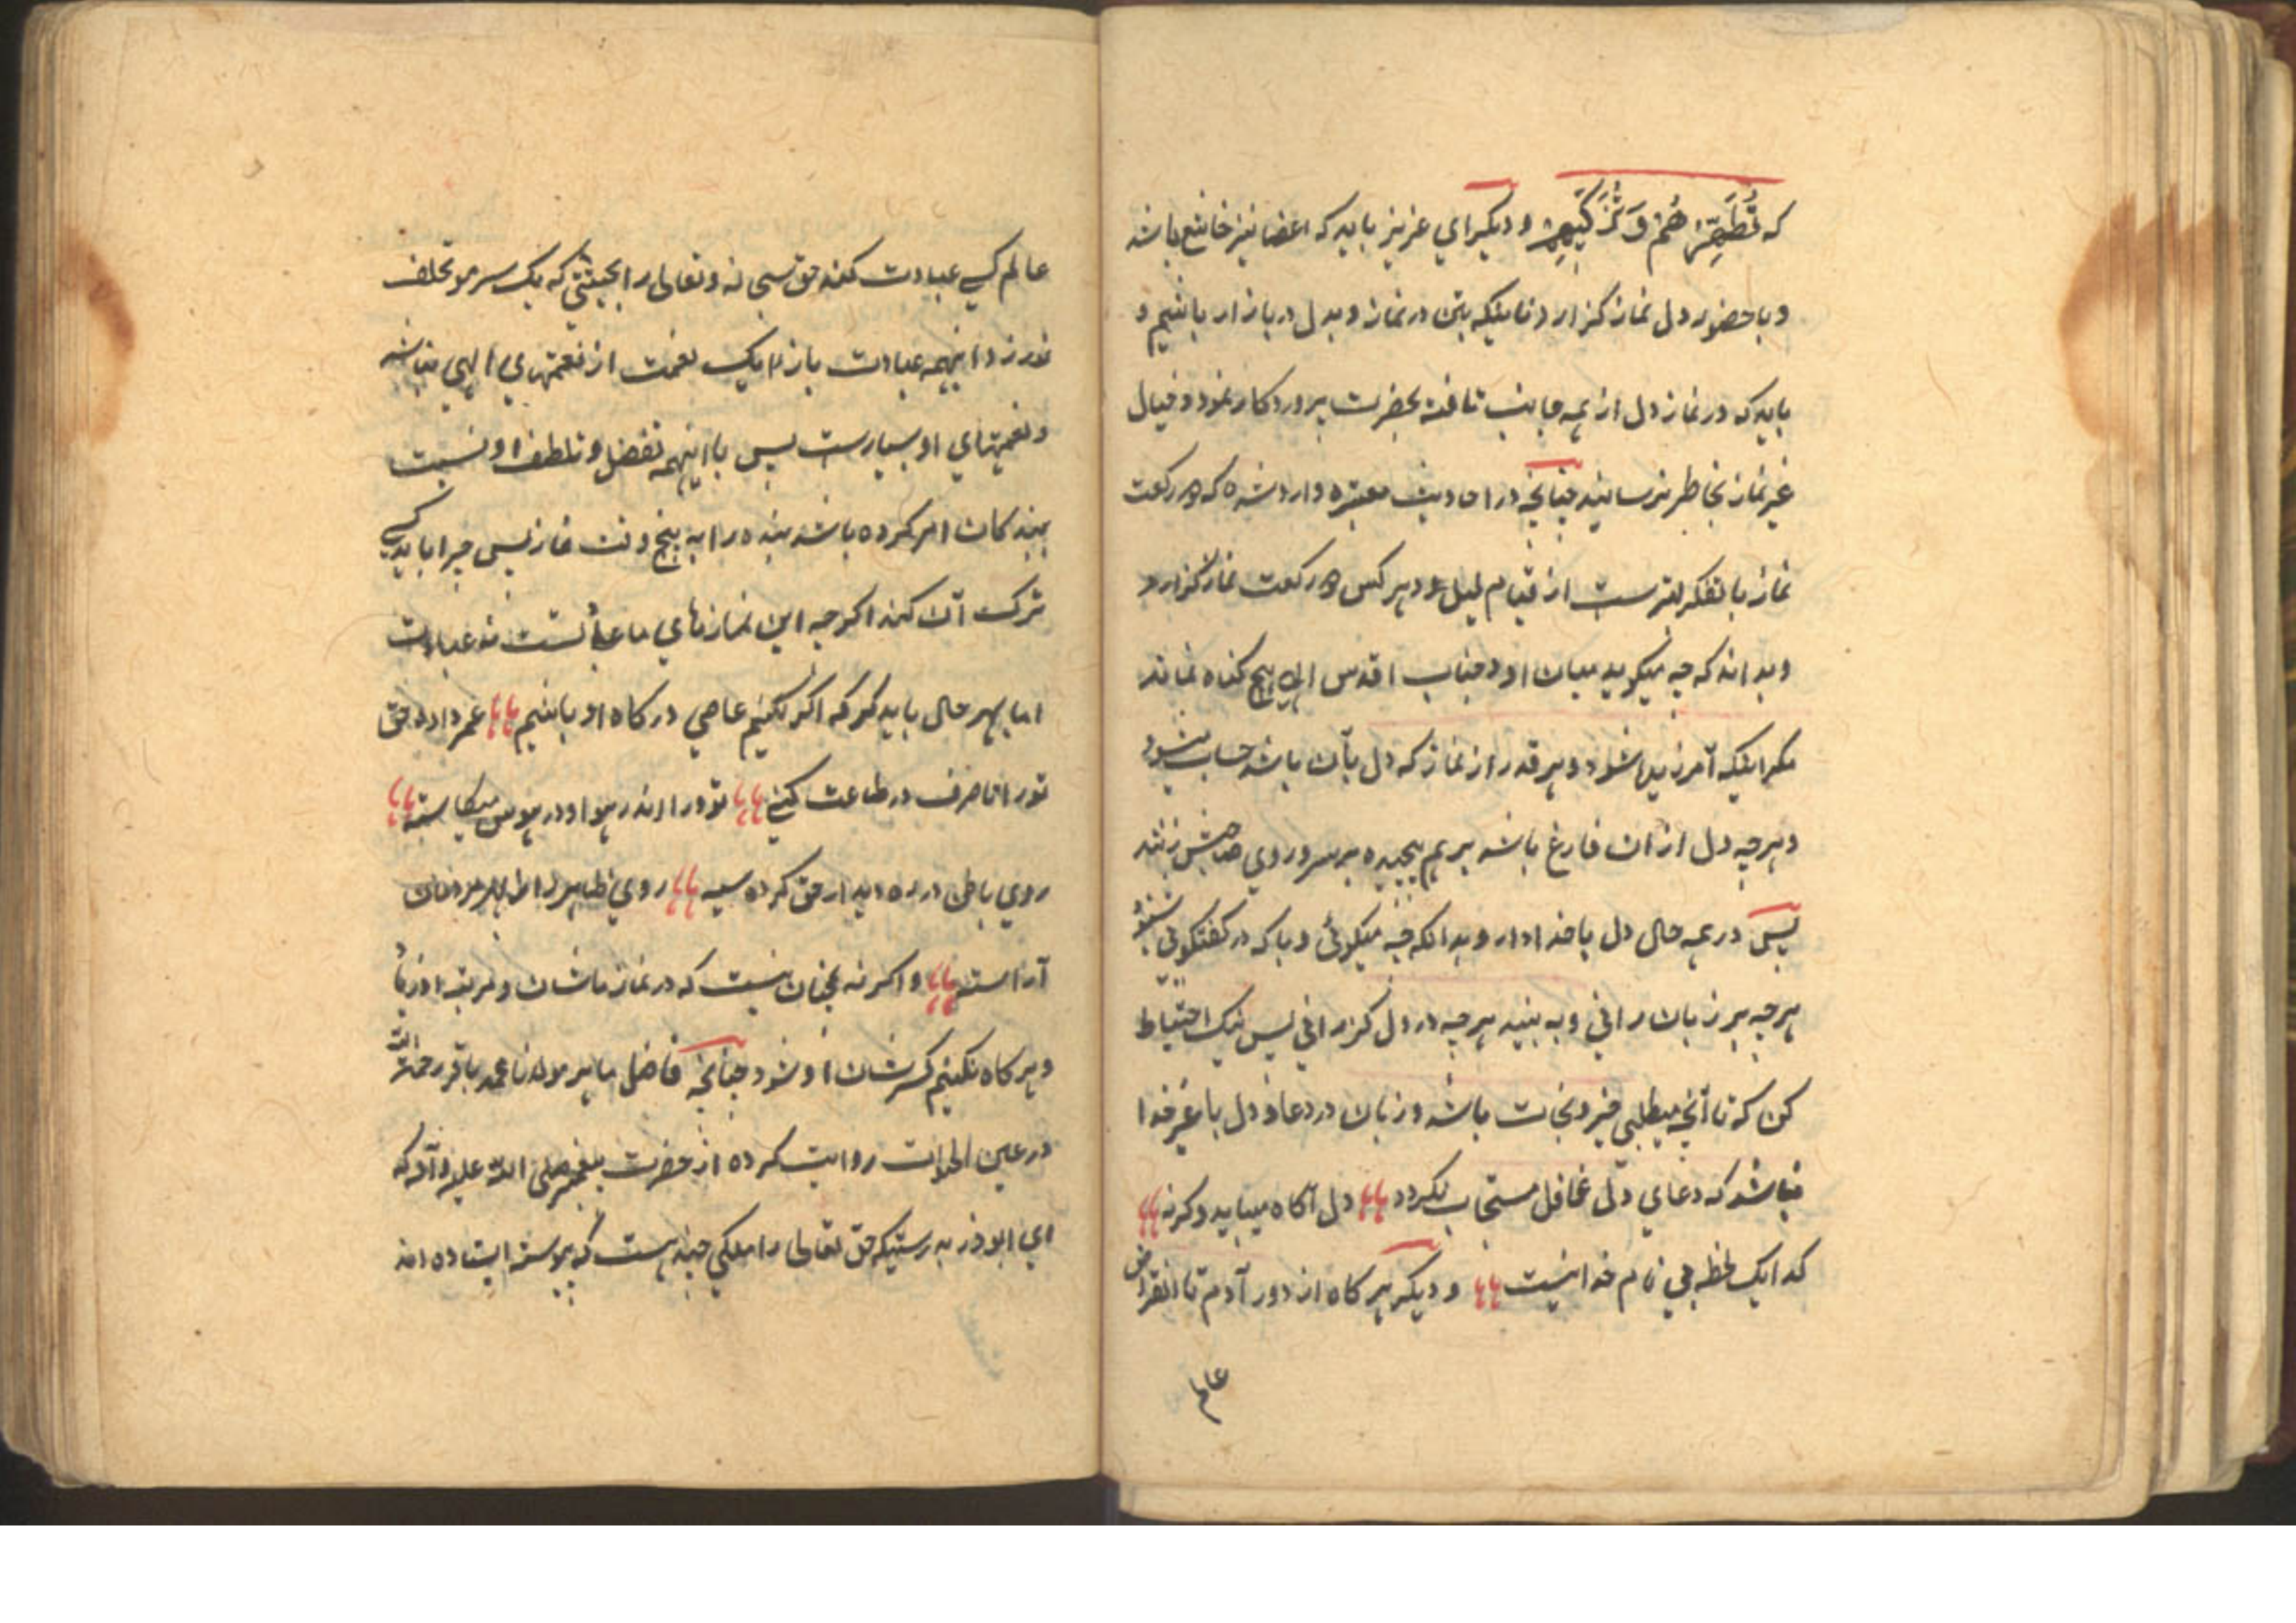 که تُطَهِّرُهُمْ وَتُزَكِّيهِمْ و دیکر ای عزیز باید که اعضا نیز خاشع باشد
و با حضور دل نماز کزارد نه اینکه بتن در نماز و بدل در بازار باشیم و
باید که در نماز دل از همه جانب تافته بحضرت پروردکار نمود و خیال
غیر نماز بخاطر نرسانید چنانچه در احادیث معتبره وارد شده که رکعت
نماز با تفکر بهترست از قیام لیل و هر کس رکعت نماز کزارد
و بداند که چه میکوید میان او و جناب اقدس الهی هیچ کناه نماند
مکر اینکه آمرزیده شود و هر قدر از نماز که دل بآن باشد حساب میشود
و هرچه دل از آن فارغ باشد برهم پیچیده بر سر و روی صاحبش زنند
پس در همه حال دل با خدا دار و بدانکه چه میکوئی و با که در کفتکوئی بشنو
هرچه بر زبان رانی و به بیند هرچه در دل کزرانی پس نیک احتیاط
کن که تا آنچه میطلبی خیر و نجات باشد و زبان در دعا و دل با غیر خدا
نباشد که دعای دل غافل مستجاب نکردد دل آکاه میباید وکرنه
کدا یک لحظه بی نام خدا نیست و دیکر هر کاه از دور آدم تا انقراض
عالم
عالم کسی عبادت کند حق سبحانه و تعالی را بحیثتی که یک سر مو تخلف
نورزد اینهمه عبادت بازاء یک نعمت از نعمتهای الهی نباشد
و نعمتهای او بسیارست پس با اینهمه تفضل و تلطف او نسبت
ببندکان امر کرده باشد بنده را به پنج وقت نماز پس چرا باید کسی
ترک آن کند اکرچه این نمازهای ما نه عبادت
اما بهر حال باید کرد که اکر نکنیم عاصی درکاه او باشیم عمر داده حق
تو را تا صرف در طاعت کنی تو ورا اندر هوا و در هوس میکاسته
روی باطن در ره دیدار حق کرده سیه روی ظاهر را مردمان
آراسته و اکرنه چنان نیست که در نماز ما شان و مرتبه او
و هرکاه نکنیم کسر شان او شود چنانچه فاضل ماهر مولانا محمد باقر رحمة الله
در عین الحیات روایت کرده از حضرت پیغمبر صلی الله علیه و آله که
ای ابوذر بدرستیکه حق تعالی را ملکی چند هست که پیوسته ایستاده اند